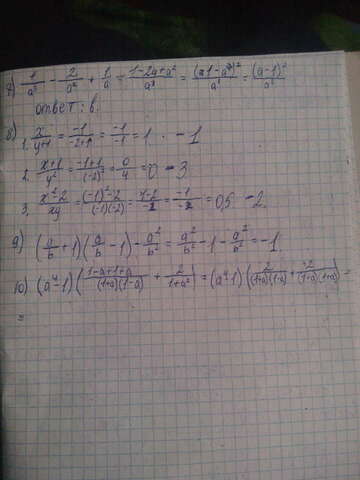 7) 1/a³ - 2/a² + 1/a = 1-2a+a²/a³ = (1-a)²/a³ = (a-1)²/a³
ответ: в.
8) 1. x/y+1 = -1/-2+1 = -1/-1 = 1 - 1
2. x+1/y² = -1+1/(-2)² = 0/4 = 0 - 3
3. x²-2/xy = (-1)²-2/(-1)(-2) = 1-2/-2 = -1/-2 = 0,5 - 2.
9) (a/b + 1)(a/b - 1) - a²/b² = a²/b² - 1 - a²/b² = -1.
10) (a⁴-1)(1-a+1+a/(1+a)(1-a) + 2/1+a²) = (a⁴-1)(2/(1+a)(1-a) + 2/(1-a)(1+a)) =
=